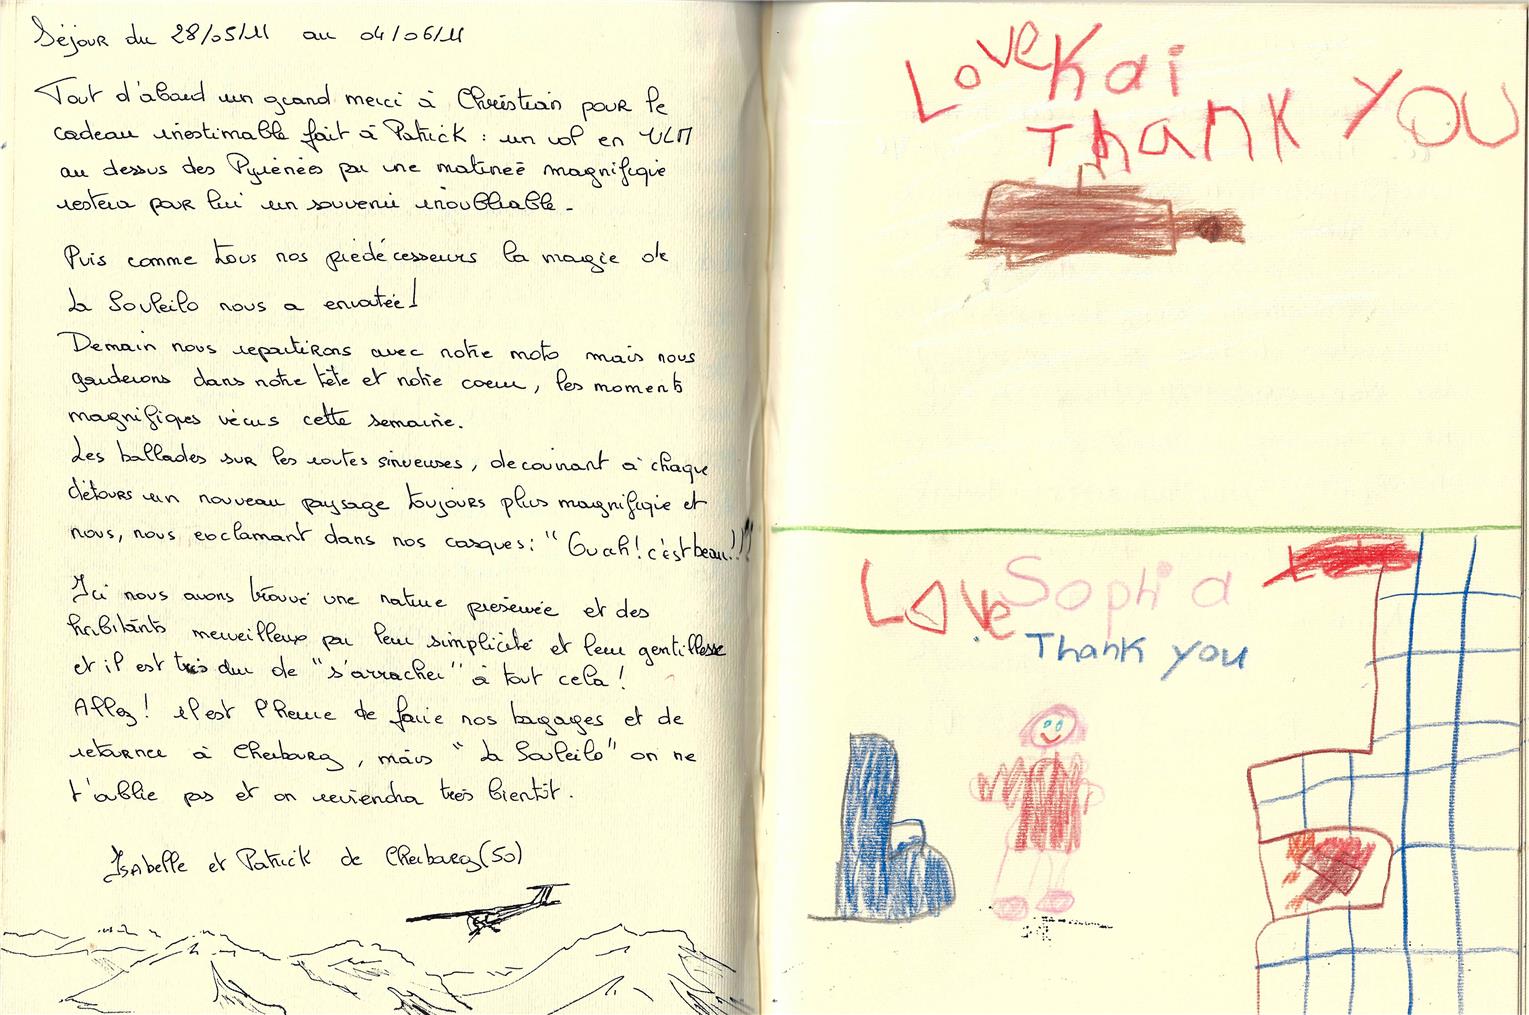 Séjour du 28/05/11 au 04/06/11
Tout d'abord un grand merci à Christian pour le
cadeau inestimable fait à Patrick : un vol en ULM
au dessus des Pyrénées par une matinée magnifique
restera pour lui un souvenir inoubliable.
Puis comme tous nos prédécesseurs la magie de
La Souleilo nous a envoûtée!
Demain nous repartirons avec notre moto mais nous
garderons dans notre tête et notre coeur, les moments
magnifiques vécus cette semaine.
Les ballades sur les routes sinueuses, decouvrant à chaque
détours un nouveau paysage toujours plus magnifique et
nous, nous exclamant dans nos casques : "Ouah! c'est beau!!!"
Ici nous avons trouvé une nature préservée et des
habitants merveilleux par leur simplicité et leur gentillesse
et il est très dur de "s'arracher" à tout cela!
Allez! il est l'heure de faire nos bagages et de
retourner à Cherbourg, mais "La Souleilo" on ne
t'oublie pas et on reviendra très bientôt.
Isabelle et Patrick de Cherbourg (50)
Love Kai
Thank YOU
Love Sophia
Thank you